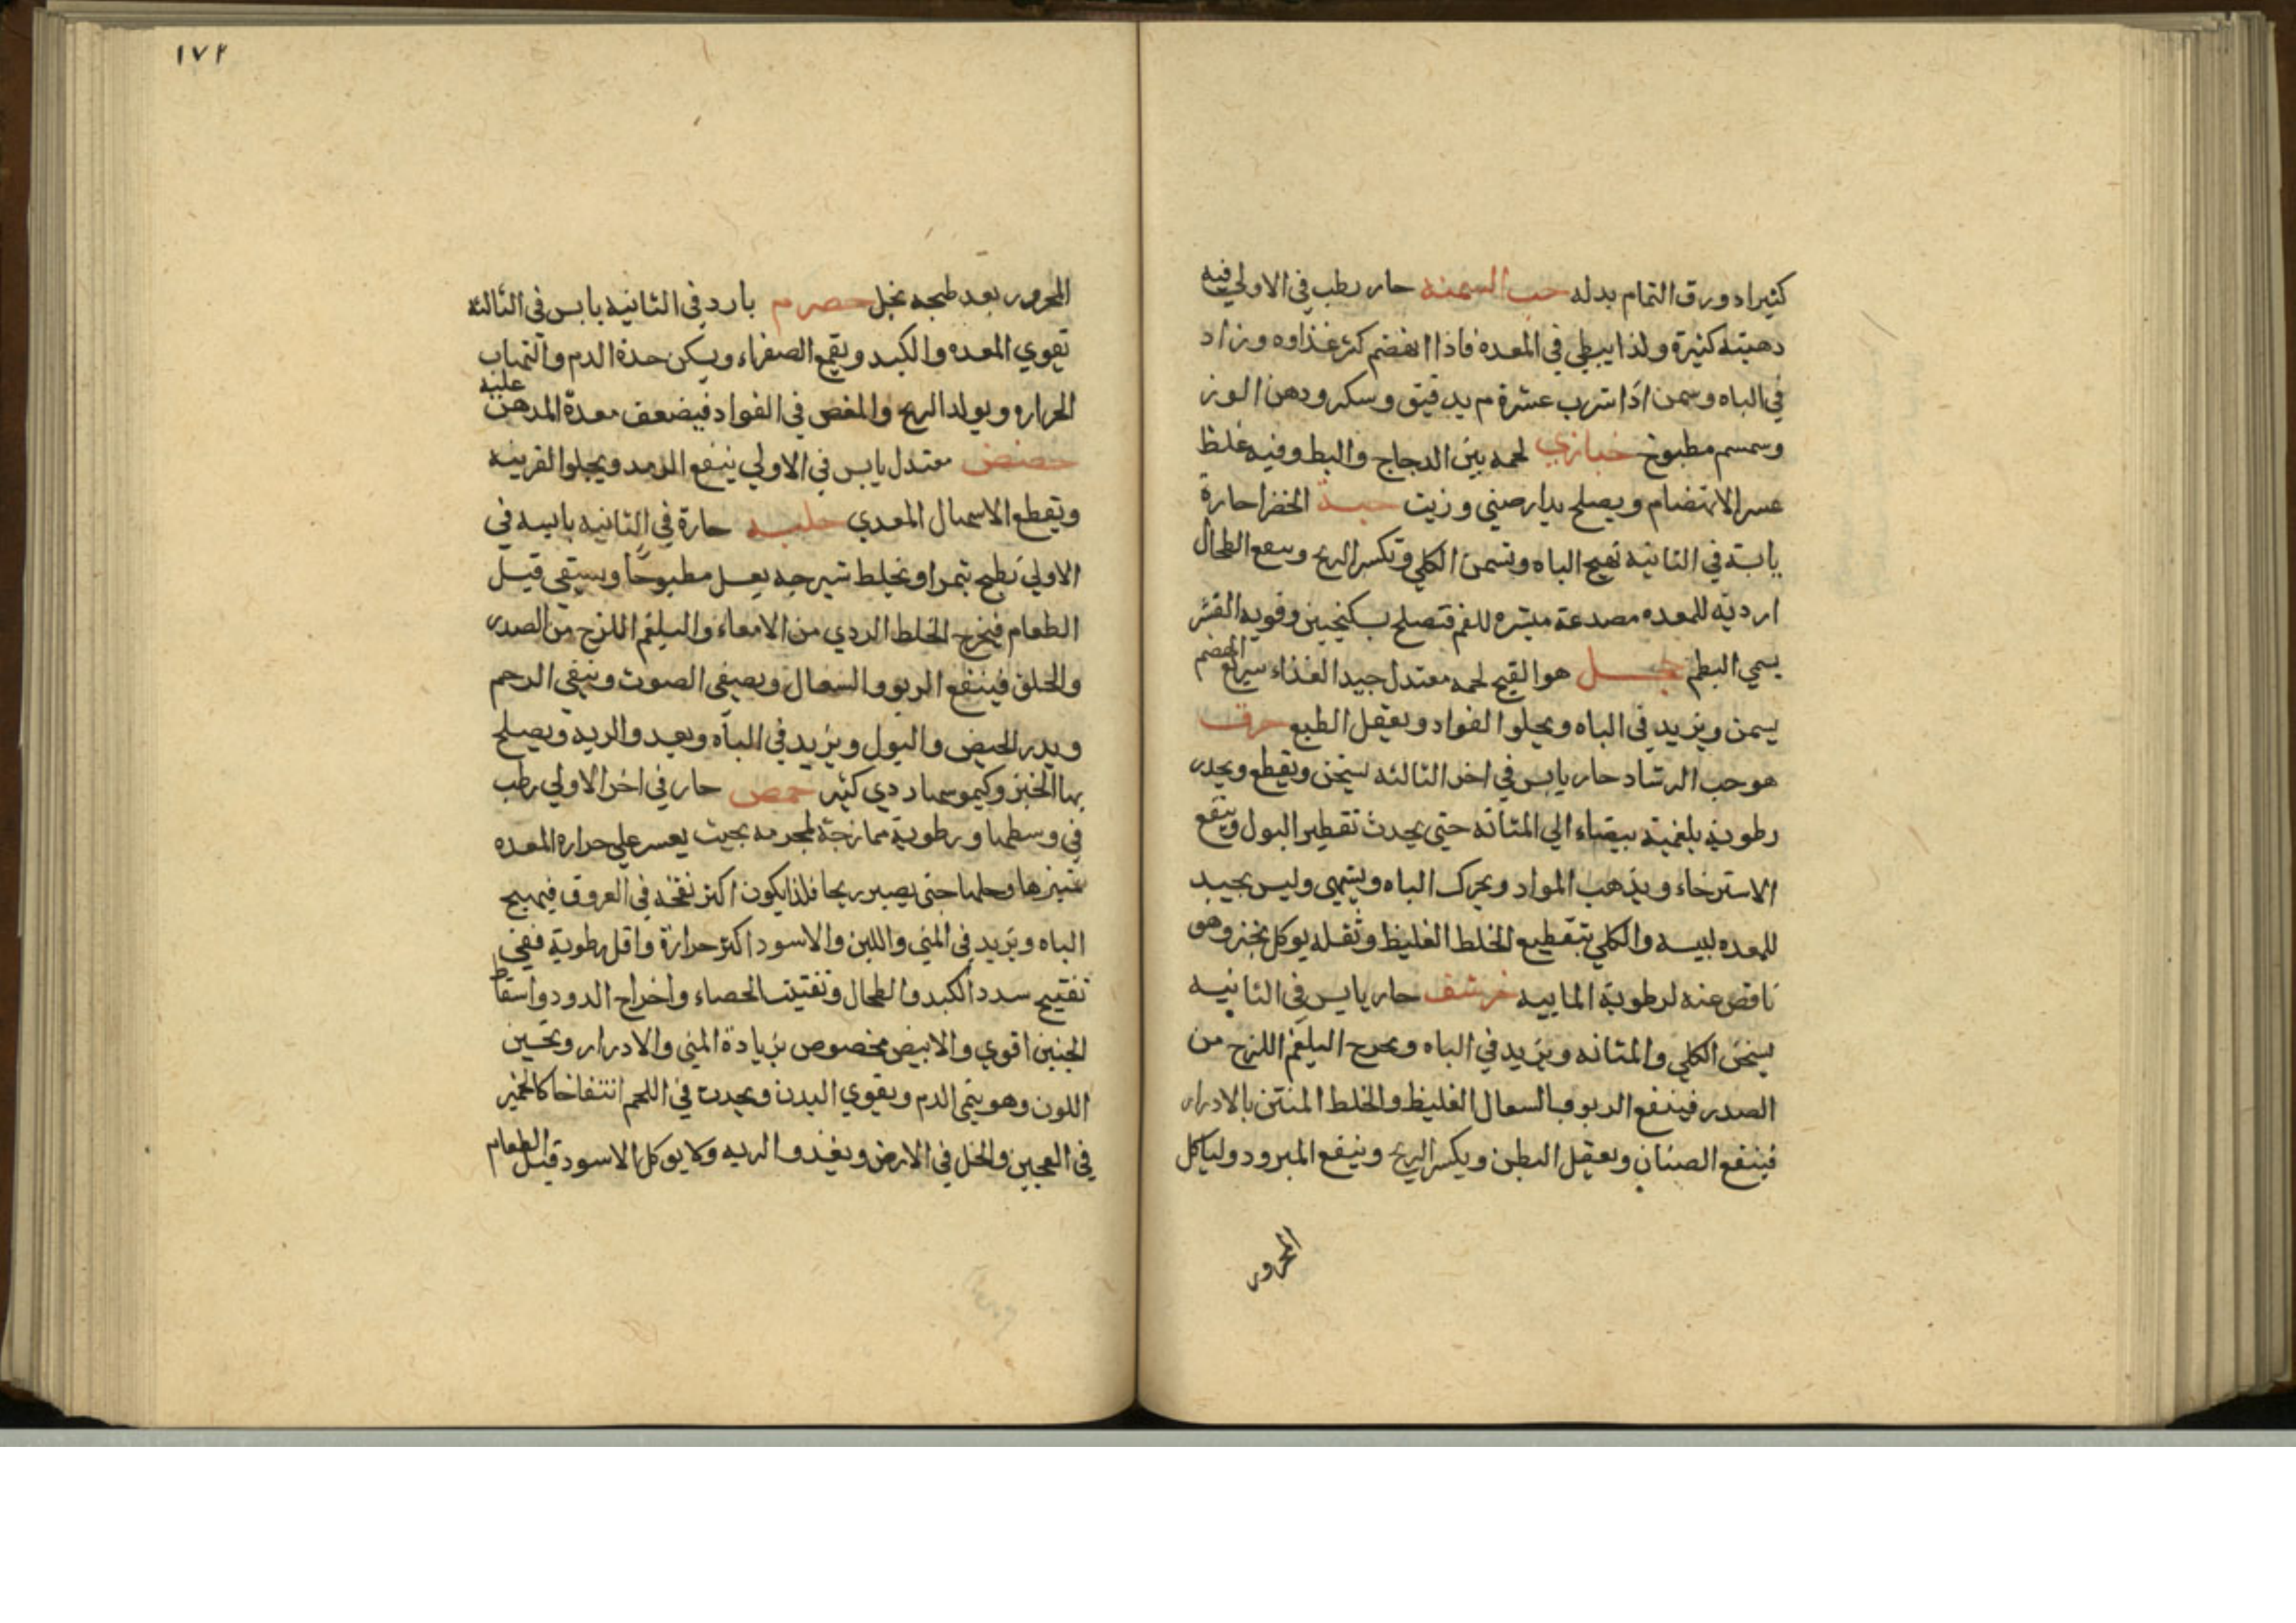 كثيراه ورق التمام بدله حب السمنه حار رطب في الاولي فيه
دهنيته كثيرة ولذا يبطي في المعدة فاذا انهضم كثر غذاوه وزاد
في الباه وسمن اذا شرب عشرة م بدقيق وسكر ودهن الوز
وسمسم مطبوخ حبازي لحمه بين الدجاج والبط وفيه غلظ
عسر الانهضام ويصلح بدارصيني وزيت حبة الخضرا حارة
يابسة في الثانيه تهيج الباه وتسمن الكلي وتكسر الريح وينفع الطحال
ارديه للمعده مصدعة مبثره للفم فتصلح بسكنجبين وقويه القشر
يسمي البطم حجل هو القبج لحمه معتدل جيد الغذاء سريع الهضم
يسمن ويزيد في الباه ويجلوا الفواد ويعقل الطبع حرف
هو حب الرشاد حار يابس في اخر الثالثه يسخن ويقطع ويحدر
رطوبة بلغمية بيضاء الي المثانه حتي يحدث تقطير البول وينفع
الاسترخاء ويذهب المواد ويحرك الباه ويشهي وليس بجيد
للمعده لبسه والكلي بتقطيع الخلط الغليظ وثقله يوكل بخبز وهو
ناقص عنه لرطوبة المايية خرشف حار يابس في الثانيه
يسخن الكلي والمثانه ويزيد في الباه ويخرج البلغم اللزج من
الصدر فينفع الربو والسعال الغليظ والخلط المنتن بالادرار
فينفع الصنان ويعقل البطن ويكسر الريح وينفع المبرود ولياكل
المحرور
١٧٢
المحرور بعد طبخه بخل حصرم بارد في الثانيه يابس في الثالثه
تقوي المعده والكبد ويقمع الصفراء ويسكن حدة الدم والتهاب
الحراره ويولد الريح والمغص في الفواد فيضعف معدة المدمن عليه
حضض معتدل يابس في الاولي ينفع الرمد ويجلوا القرنيه
ويقطع الاسهال المعدي حلبه حارة في الثانيه يابسه في
الاولي تطبخ بتمر او يخلط شيرجه بعسل مطبوخا ويستقي قبل
الطعام فيخرج الخلط الردي من الامعاء والبلغم اللزج من الصدر
والحلق فينفع الربو والسعال ويصفي الصوت وينقي الرحم
ويدر الحيض والبول ويزيد في الباه ويغدو الريه ويصلح
بها الخبز وكيموسها ردي كثير حمص حار في اخر الاولي رطب
في وسطها ورطوبة ممازجة لجرمه بحيث يعسر علي حراره المعده
تميزها وحلها حتي يصير ريحا فلذا يكون اكثر نفخه في العروق فيهيج
الباه ويزيد في المني واللبن والاسود اكثر حرارة واقل رطوبة ففي
تفتيح سدد الكبد والطحال وتفتيت الحصاء واخراج الدود واسقاط
الجنين اقوي والابيض مخصوص بزيادة المني والادرار وتحسين
اللون وهو ينمي الدم ويقوي البدن ويحدث في اللحم انتفاخا كالخمير
في العجين والخل في الارض ويغذوا الريه ولا يوكل الاسود قبل الطعام